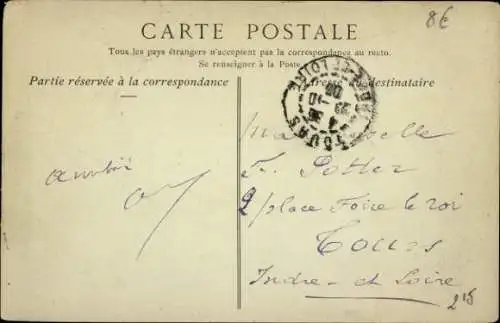 CARTE POSTALE
8€
Tous les pays étrangers n'acceptent pas la correspondance au recto.
Se renseigner à la Poste.
Partie réservée à la correspondance
destinataire
TOURS
Amitié
F. Potter
2 place Foire le roi
Tours
Indre-et Loire